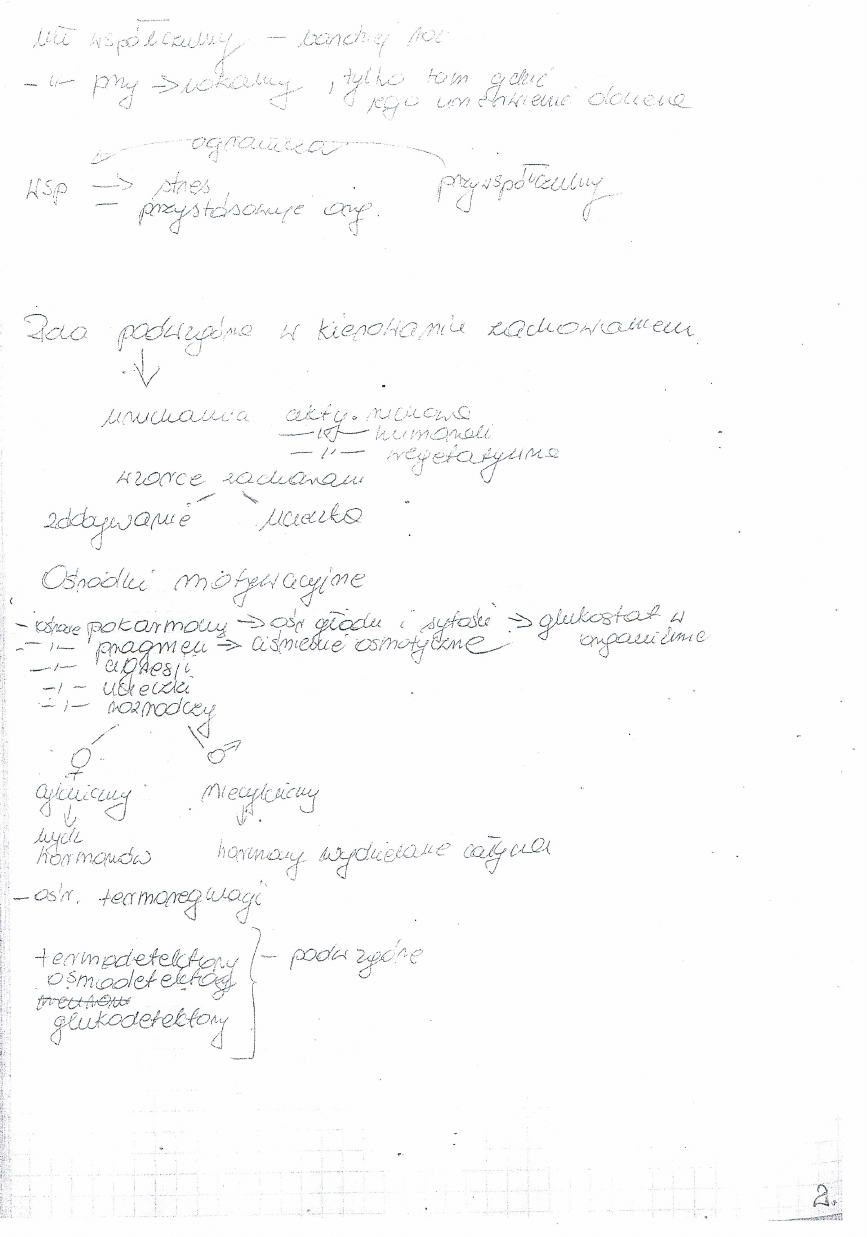 Ukł współczulny – bardziej roz
–"– przy → lokalny, tylko tam gdzie
jego unerwienie dociera
ogranicza
WSP → stres przywspółczulny
– przystosowuje org.
Rola podwzgórza w kierowaniu zachowaniem
uruchamia akty. ruchowe
–"– humorali
–"– wegetatywne
wzorce zachowań
zdobywanie ucieczka
Ośrodki motywacyjne
– pokarmowy → ośr głodu i sytości → glukostat w
organizmie
–"– pragnień → ciśnienie osmotyczne
–"– agresji
–"– ucieczki
–"– rozrodczy
♀ ♂
cykliczny niecykliczny
wydz
hormonów hormony wydzielane cały czas
– ośr. termoregulacji
termodetektory – podwzgórze
osmodetektory
glukodetektory
2.